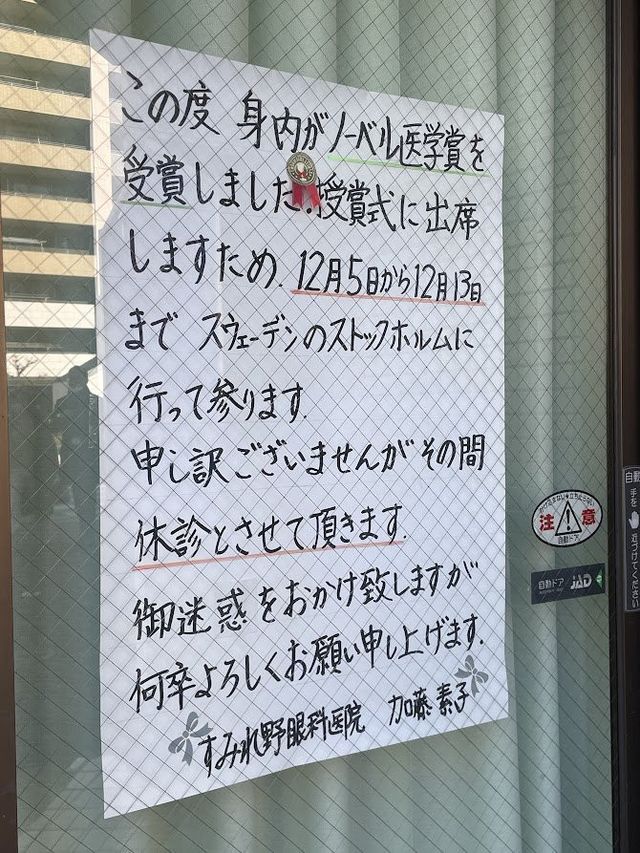 この度 身内がノーベル医学賞を
受賞しました.授賞式に出席
しますため. 12月5日から12月13日
まで スウェーデンのストックホルムに
行って参ります.
申し訳ございませんがその間
休診とさせて頂きます.
御迷惑をおかけ致しますが
何卒よろしくお願い申し上げます.
すみれ野眼科医院 加藤 素子
注 意
自動ドア
自動ドア JAD
自動
手を
近づけてください